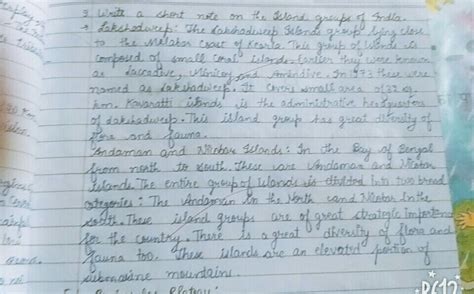 3 Write a short note on the Island groups of India.
→ Lakshadweep: The Lakshadweep Islands group lying close
to the Malabar coast of Kearla. This group of Islands is
composed of small coral islands. Earlier they were known
as Laccadive, Minicoy and Amindive. In 1973 these were
named as Lakshadweep. It covers small area of 32 sq.
km. Kavaratti islands is the administrative headquarters
of Lakshadweep. This island group has great diversity of
flora and fauna.
Andaman and Nicobar Islands: In the Bay of Bengal
from north to south. These are Andaman and Nicobar
Islands. The entire group of islands is divided into two broad
categories: The Andaman in the North and Nicobar In the
South. These island groups are of great strategic importance
for the country. There is a great diversity of flora and
fauna too. These islands are an elevated portion of
submarine mountains.
Plateau: